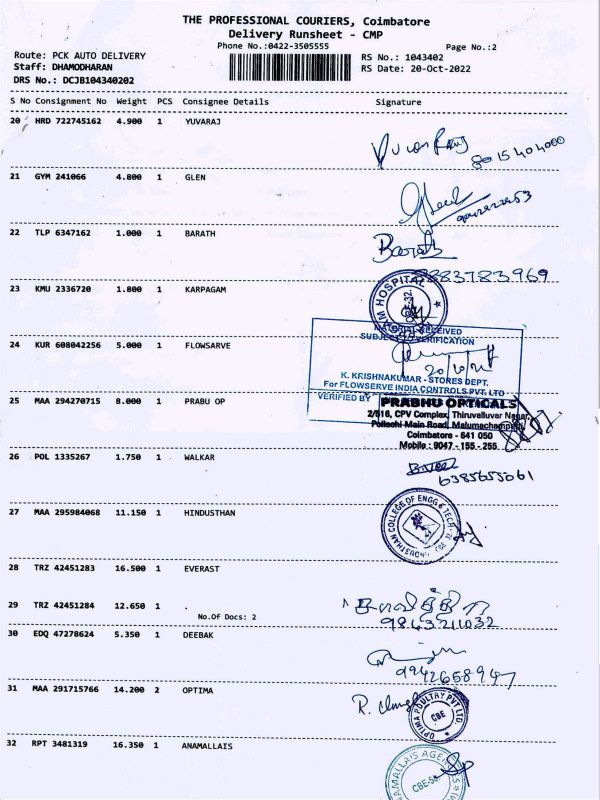 THE PROFESSIONAL COURIERS, Coimbatore
Delivery Runsheet - CMP
Phone No.:0422-3505555
Page No.:2
Route: PCK AUTO DELIVERY
RS No.: 1043402
Staff: DHAMODHARAN
RS Date: 20-Oct-2022
DRS No.: DCJB104340202
S No Consignment No Weight PCS Consignee Details Signature
20 HRD 722745162 4.900 1 YUVARAJ
8015404000
21 GYM 241066 4.800 1 GLEN
22 TLP 6347162 1.000 1 BARATH
Barath
8883783969
23 KMU 2336720 1.800 1 KARPAGAM
HOSPITAL
24 KUR 608042256 5.000 1 FLOWSARVE
MATERIAL RECEIVED
SUBJECT TO VERIFICATION
K. KRISHNAKUMAR - STORES DEPT.
For FLOWSERVE INDIA CONTROLS PVT. LTD
VERIFIED BY
25 MAA 294270715 8.000 1 PRABU OP
PRABHU OPTICALS
2/516, CPV Complex, Thiruvalluvar Nagar,
Pollachi Main Road, Malumachampatti,
Coimbatore - 641 050
Mobile : 9047 - 155 - 255
26 POL 1335267 1.750 1 WALKAR
6385655061
27 MAA 295984068 11.150 1 HINDUSTHAN
HINDUSTHAN COLLEGE OF ENGG & TECH
28 TRZ 42451283 16.500 1 EVERAST
29 TRZ 42451284 12.650 1
No.Of Docs: 2
9843211032
30 EDQ 47278624 5.350 1 DEEBAK
9942658947
31 MAA 291715766 14.200 2 OPTIMA
OPTIMA POULTRY PVT LTD
CBE
32 RPT 3481319 16.350 1 ANAMALLAIS
ANAMALLAIS AGENCIES